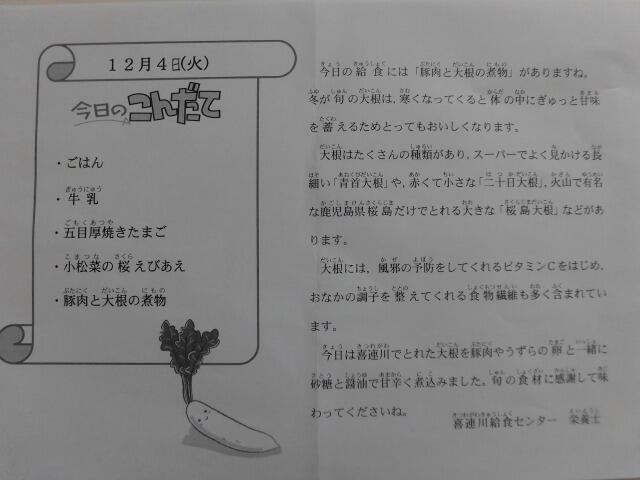 12月4日(火)
今日のこんだて
・ごはん
・牛乳
・五目厚焼きたまご
・小松菜の桜えびあえ
・豚肉と大根の煮物
今日の給食には「豚肉と大根の煮物」がありますね。
冬が旬の大根は，寒くなってくると体の中にぎゅっと甘味
を蓄えるためとってもおいしくなります。
大根はたくさんの種類があり，スーパーでよく見かける長
細い「青首大根」や，赤くて小さな「二十日大根」，火山で有名
な鹿児島県桜島だけでとれる大きな「桜島大根」などがあ
ります。
大根には，風邪の予防をしてくれるビタミンCをはじめ，
おなかの調子を整えてくれる食物繊維も多く含まれてい
ます。
今日は喜連川でとれた大根を豚肉やうずらの卵と一緒に
砂糖と醤油で甘辛く煮込みました。旬の食材に感謝して味
わってくださいね。
喜連川給食センター　栄養士